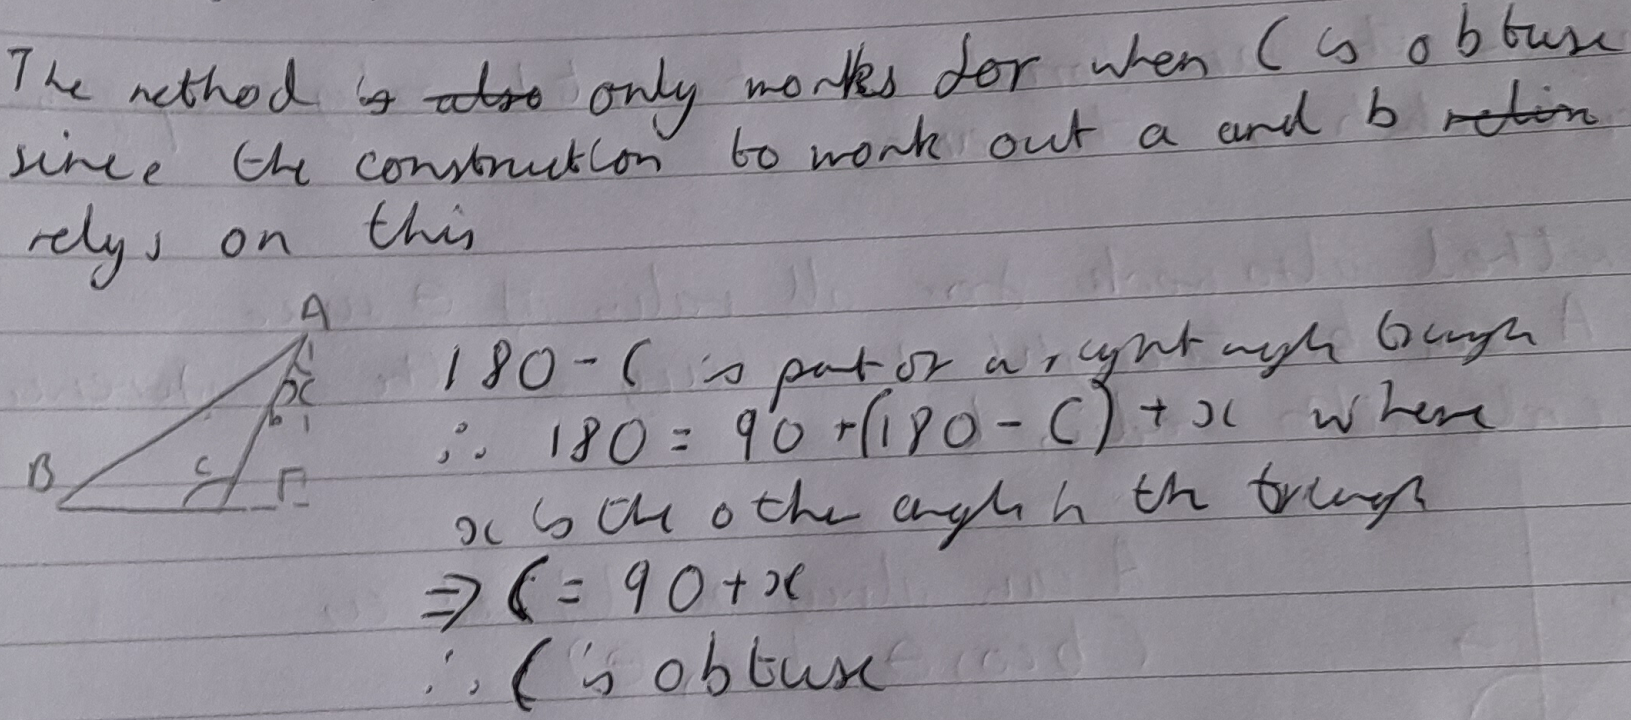 The method is also only works for when C is obtuse
since the construction to work out a and b
relys on this
A
x
b
B
C
180 - C is part of a right angle triangle
∴ 180 = 90 + (180 - C) + x where
x is the other angle in the triangle
⇒ C = 90 + x
∴ C is obtuse